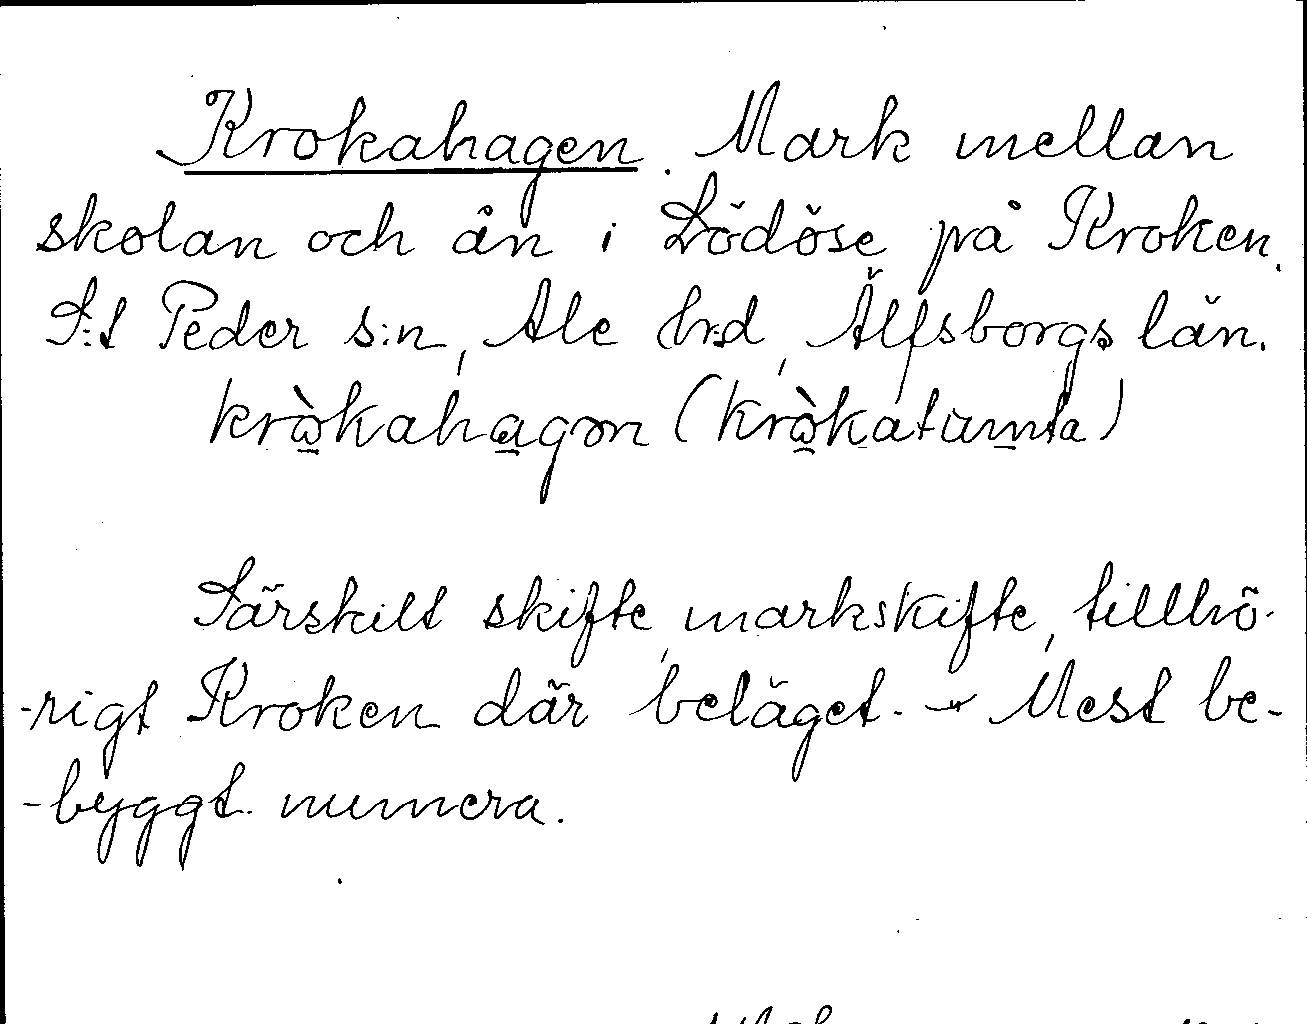 Krokahagen. Mark mellan
skolan och ån i Lödöse på Kroken.
S:t Peder s:n, Ale hrd, Älfsborgs län.
kròkahagən (kròkatùmta)
Särskilt skifte, markskifte, tillhö-
-rigt Kroken där beläget. - Mest be-
-byggt numera.